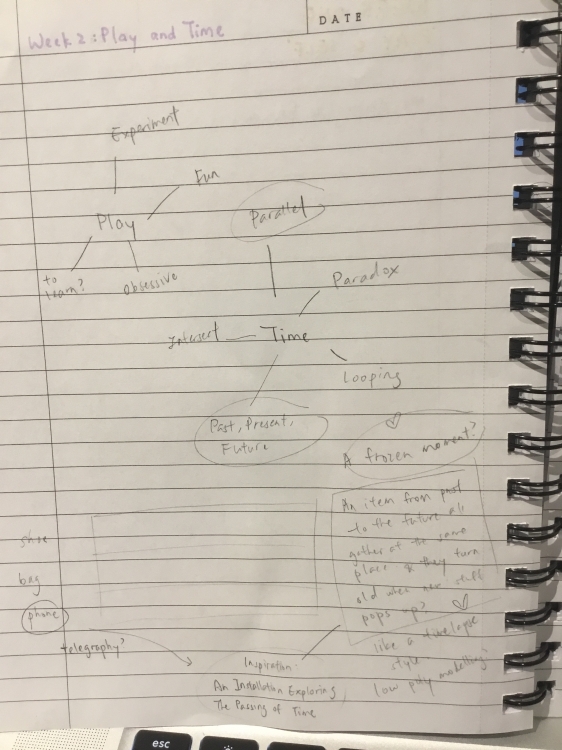 Week 2: Play and Time
DATE
Experiment
Fun
Play
Parallel
to
learn?
obsessive
Paradox
Intersect
Time
Looping
Past, Present,
Future
A frozen moment?
An item from past
to the future all
gather at the same
place & they turn
old when new stuff
pops up?
like a timelapse
style
low ploy modelling?
shoe
bag
phone
telegraphy?
Inspiration:
An Installation Exploring
The Passing of Time
esc